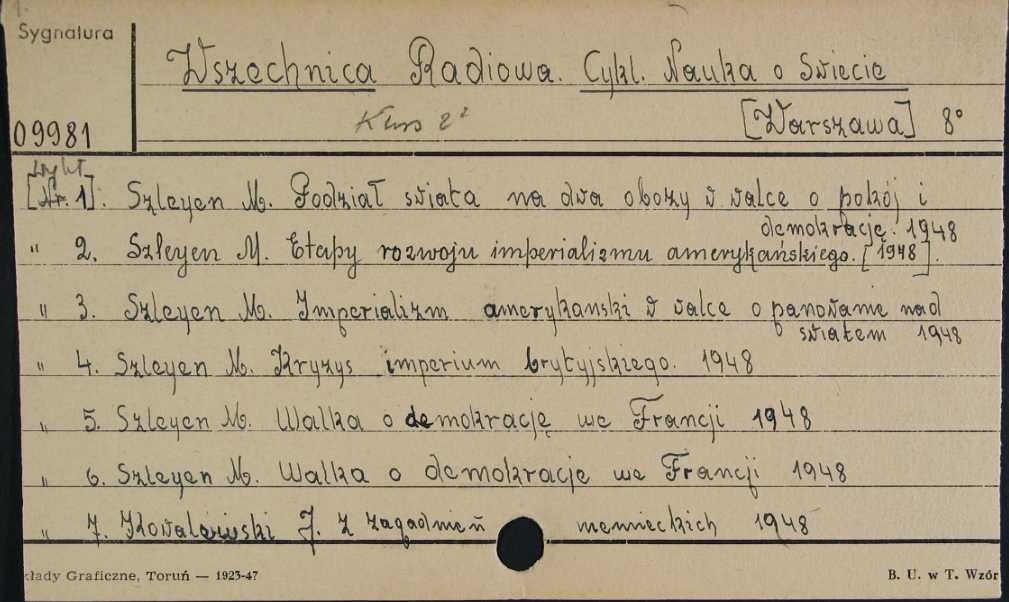 Sygnatura
Wszechnica Radiowa. Cykl. Nauka o Swiecie
Kurs 2
[Warszawa] 8°
09981
[Nr. 1]. Szleyen M. Podział swiata na dwa obozy w walce o pokój i
demokrację. 1948
" 2. Szleyen M. Etapy rozwoju imperializmu amerykańskiego. [1948].
" 3. Szleyen M. Imperializm amerykanski w walce o panowanie nad
swiatem 1948
" 4. Szleyen M. Kryzys imperium brytyjskiego. 1948
" 5. Szleyen M. Walka o demokrację we Francji 1948
" 6. Szleyen M. Walka o demokracje we Francji 1948
" 7. Kowalewski J. Z zagadnień niemieckich 1948
kłady Graficzne, Toruń — 1923-47
B. U. w T. Wzór